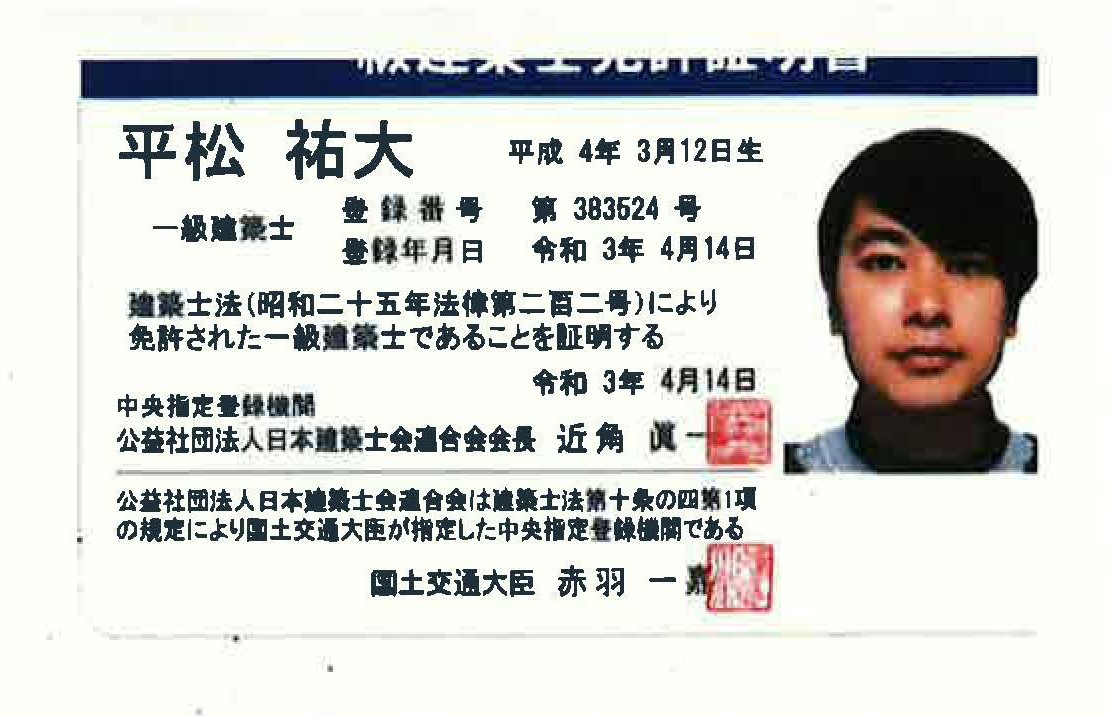 級建築士免許証明書
平松 祐大 平成 4年 3月12日生
一級建築士 登録番号 第 383524 号
登録年月日 令和 3年 4月14日
建築士法(昭和二十五年法律第二百二号)により
免許された一級建築士であることを証明する
令和 3年 4月14日
中央指定登録機関
公益社団法人日本建築士会連合会会長 近角 眞一
公益社団法人日本建築士会連合会は建築士法第十条の四第1項
の規定により国土交通大臣が指定した中央指定登録機関である
国土交通大臣 赤羽 一嘉